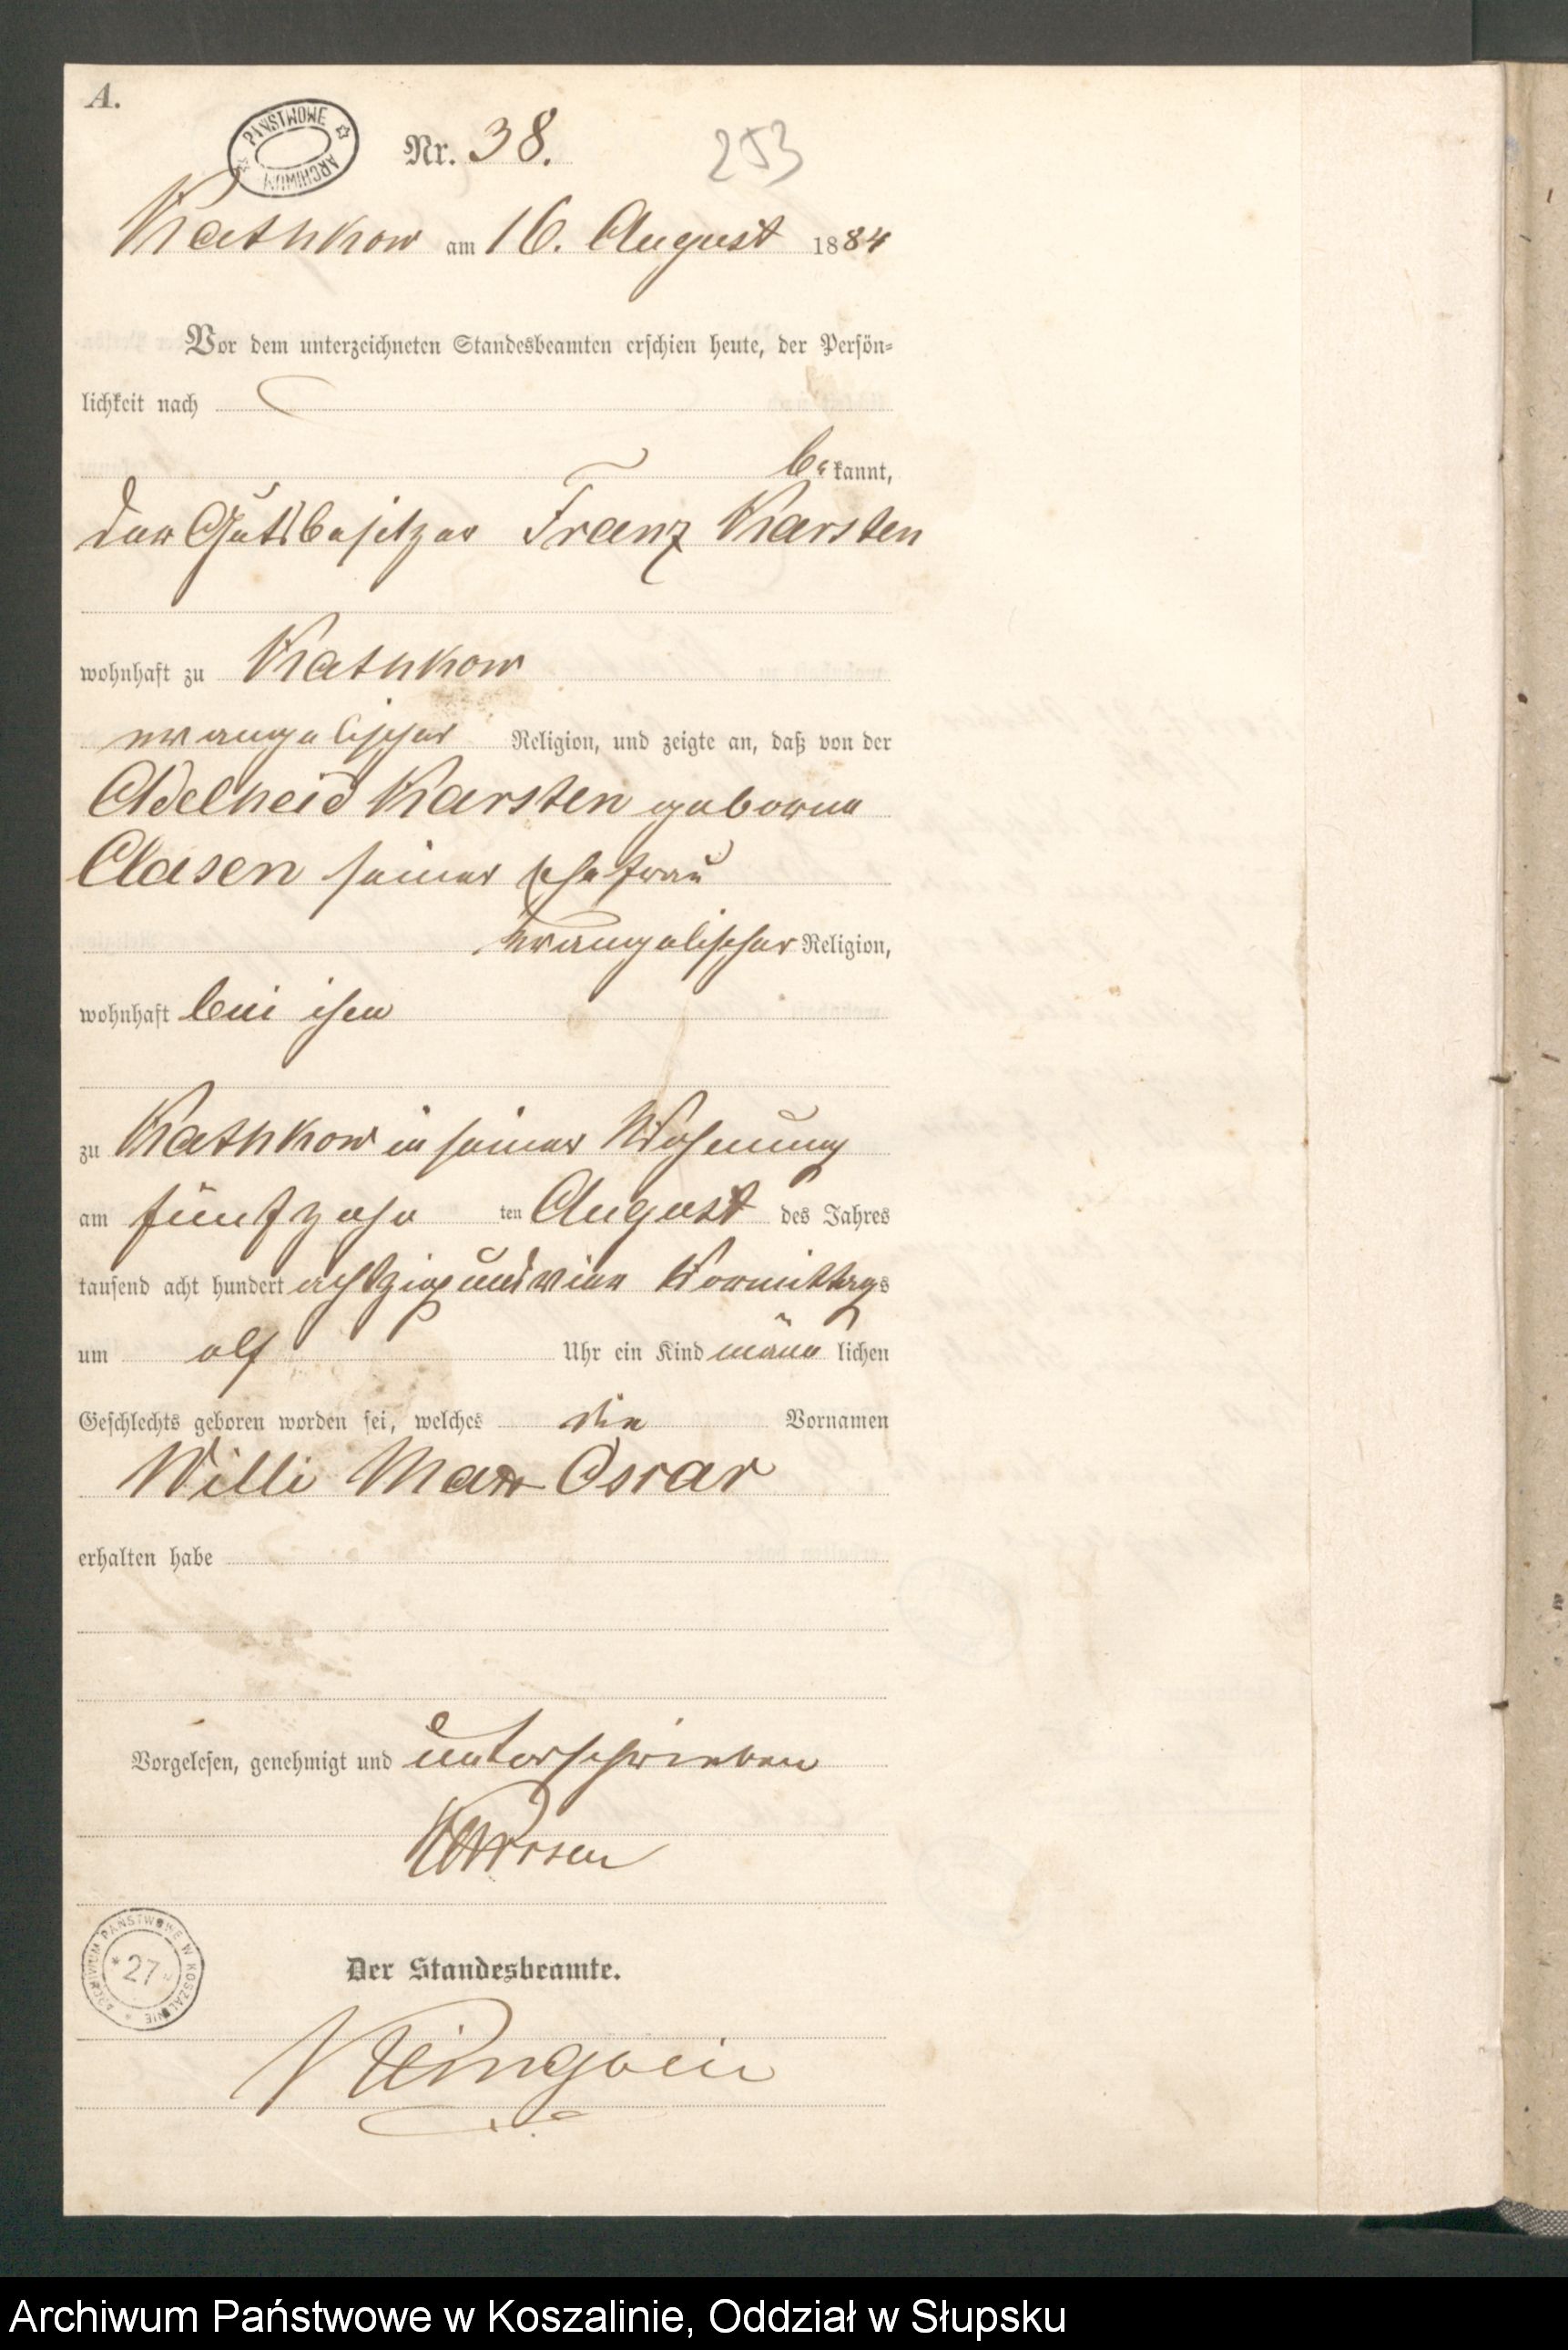 A.
PAŃSTWOWE ARCHIWUM
Nr. 38.
253
Kathkow am 16. August 1884
Vor dem unterzeichneten Standesbeamten erschien heute, der Persön-
lichkeit nach
bekannt,
der Gutsbesitzer Franz Karsten
wohnhaft zu Kathkow
evangelischer Religion, und zeigte an, daß von der
Adelheid Karsten geborne
Clasen seiner Ehefrau
evangelischer Religion,
wohnhaft bei ihm
zu Kathkow in seiner Wohnung
am fünfzehn ten August des Jahres
tausend acht hundert achtzig und vier Vormittags
um elf Uhr ein Kind männlichen
Geschlechts geboren worden sei, welches die Vornamen
Willi Max Oscar
erhalten habe
Vorgelesen, genehmigt und unterschrieben
Der Standesbeamte.
ARCHIWUM PAŃSTWOWE W KOSZALINIE
* 27 *
Archiwum Państwowe w Koszalinie, Oddział w Słupsku